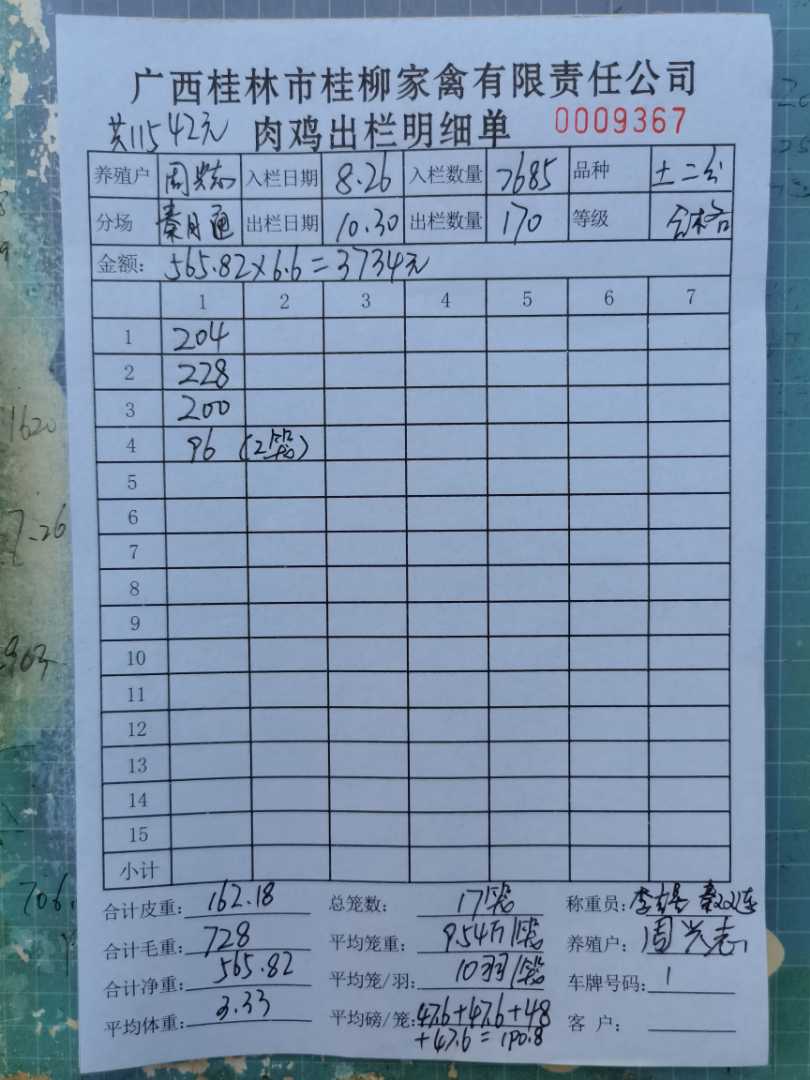 广西桂林市桂柳家禽有限责任公司
共11542元 肉鸡出栏明细单 0009367
养殖户 周兴志 入栏日期 8.26 入栏数量 7685 品种 土二
分场 秦月通 出栏日期 10.30 出栏数量 170 等级 合格
金额: 565.82×6.6=3734元
1 2 3 4 5 6 7
1 204
2 228
3 200
4 96 (2笼)
5
6
7
8
9
10
11
12
13
14
15
小计
合计皮重: 162.18 总笼数: 17笼 称重员:
合计毛重: 728 平均笼重: 9.54斤/笼 养殖户: 周兴志
合计净重: 565.82 平均笼/羽: 10羽/笼 车牌号码: 1
平均体重: 3.33 平均磅/笼: 47.6+47.6+48 客 户:
+47.6=190.8